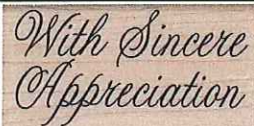 With Sincere
Appreciation